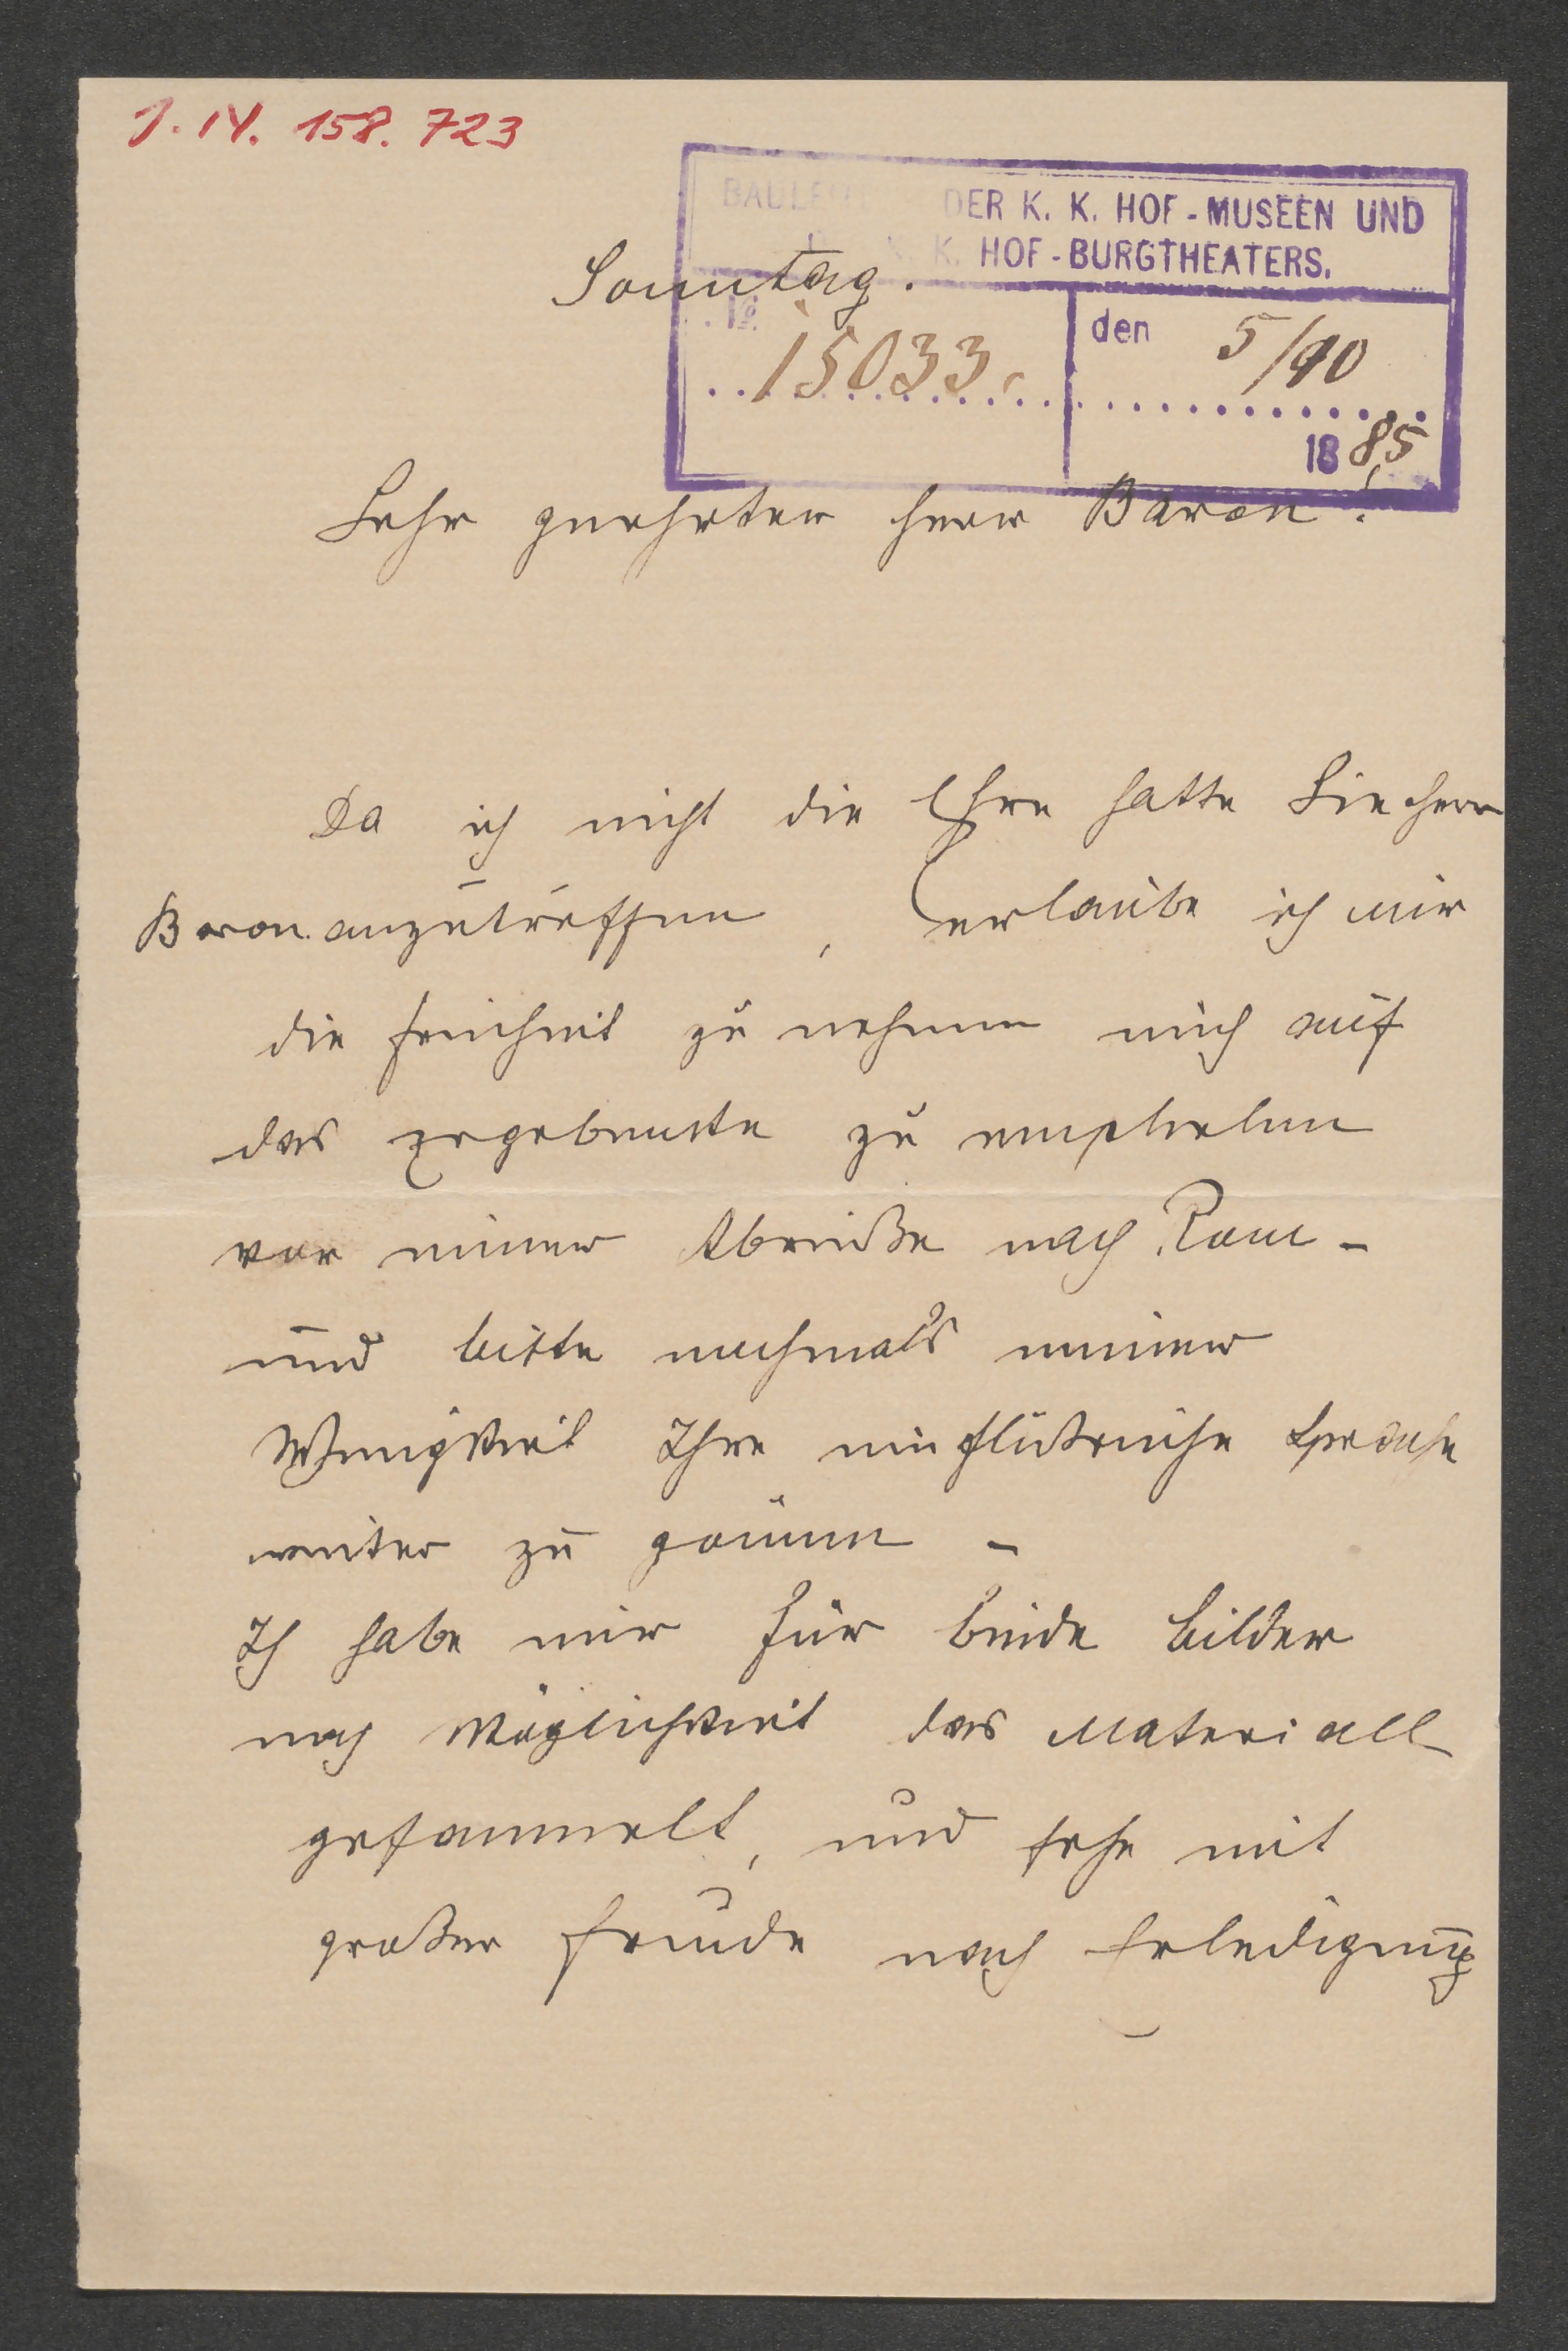 J. N. 158.723
BAULEITUNG DER K. K. HOF-MUSEEN UND
K. HOF-BURGTHEATERS.
Sonntag.
№ 15033.
den 5/10
1885
Sehr geehrter Herr Baron!
Da ich nicht die Ehre hatte Sie Herr
Baron anzutreffen, erlaube ich mir
die Freiheit zu nehmen mich auf
das ergebenste zu emphelen
vor meiner Abreiße nach Rom –
und bitte nochmals meiner
Wenigkeit Ihre einflußreiche Sprache
weiter zu gönnen –
Ich habe mir für beide Bilder
nach Möglichkeit das Materiall
gesammelt, und sehe mit
großer Freude nach Erledigung